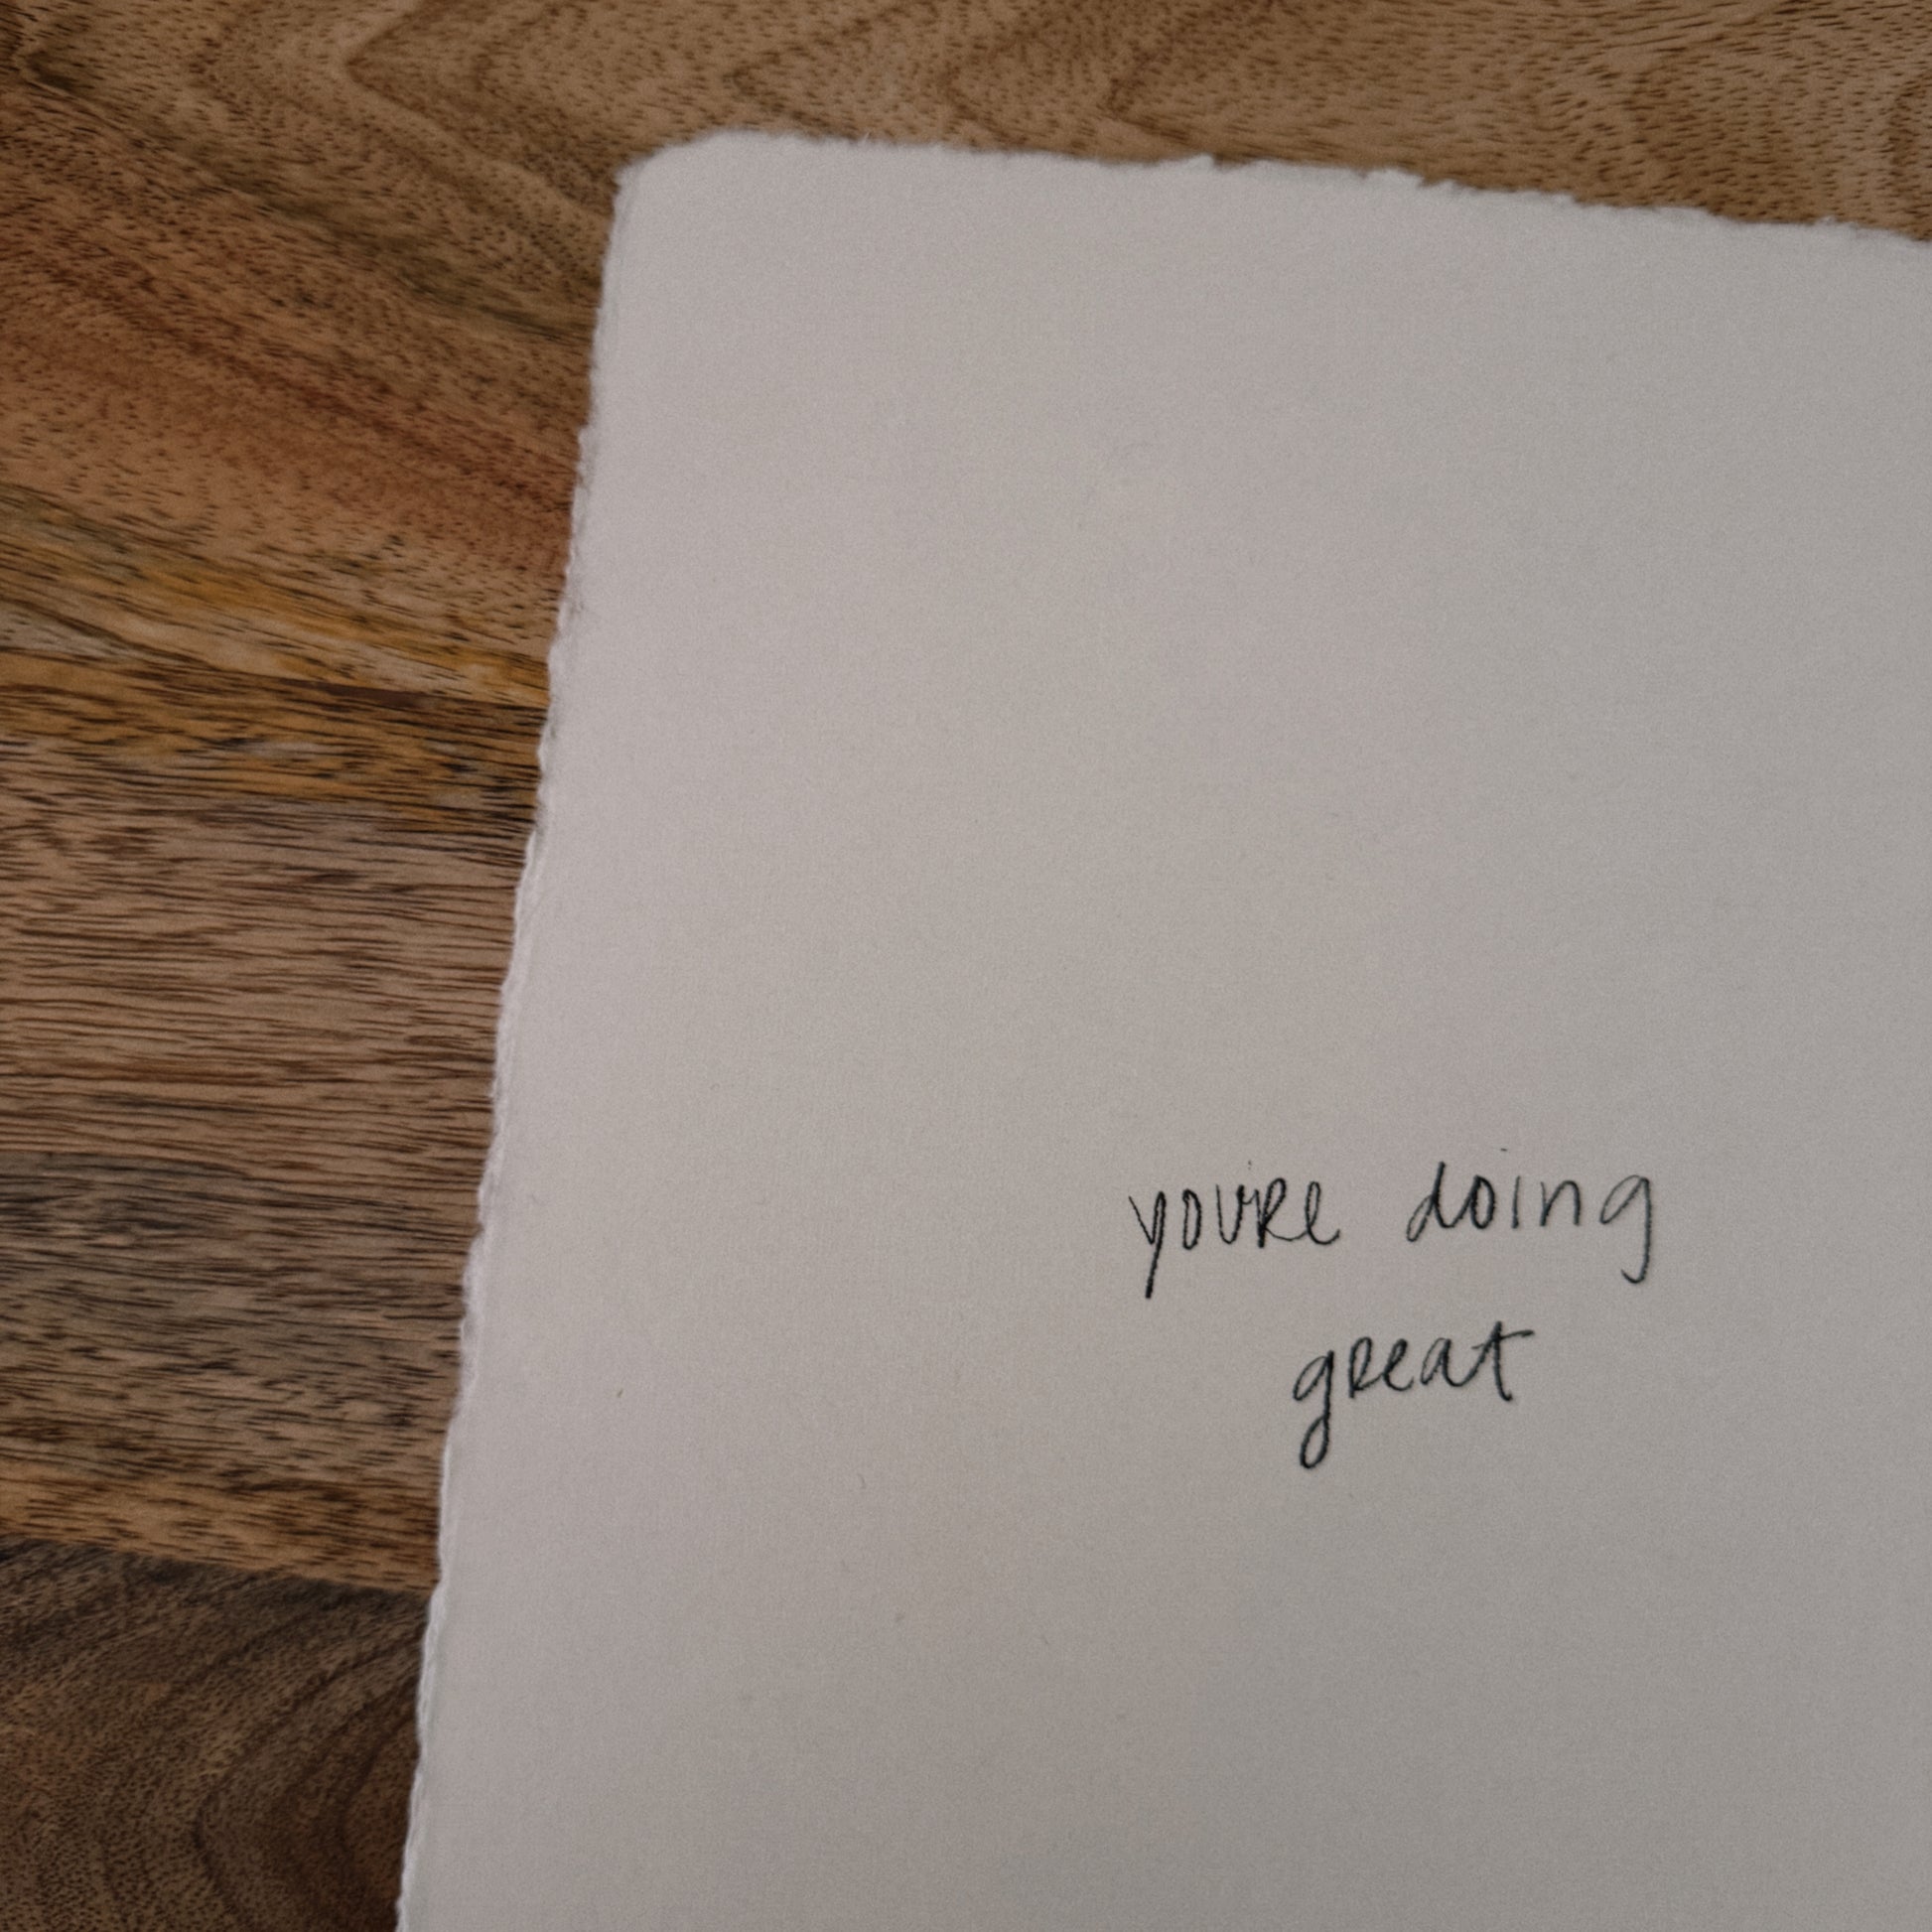 you're doing
great